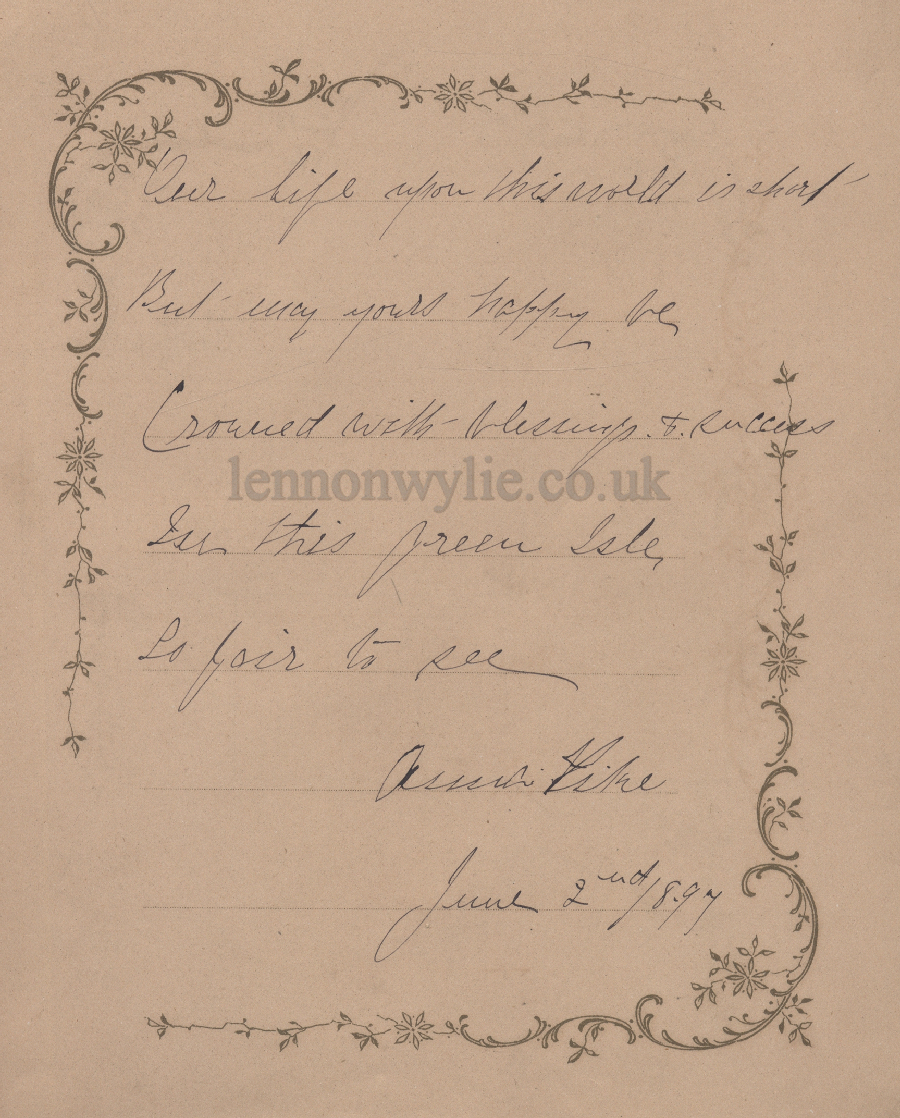 Our life upon this world is short
But may yours happy be
Crowned with blessings & success
lennonwylie.co.uk
In this green Isle,
So fair to see
Annie Pike
June 2nd/897